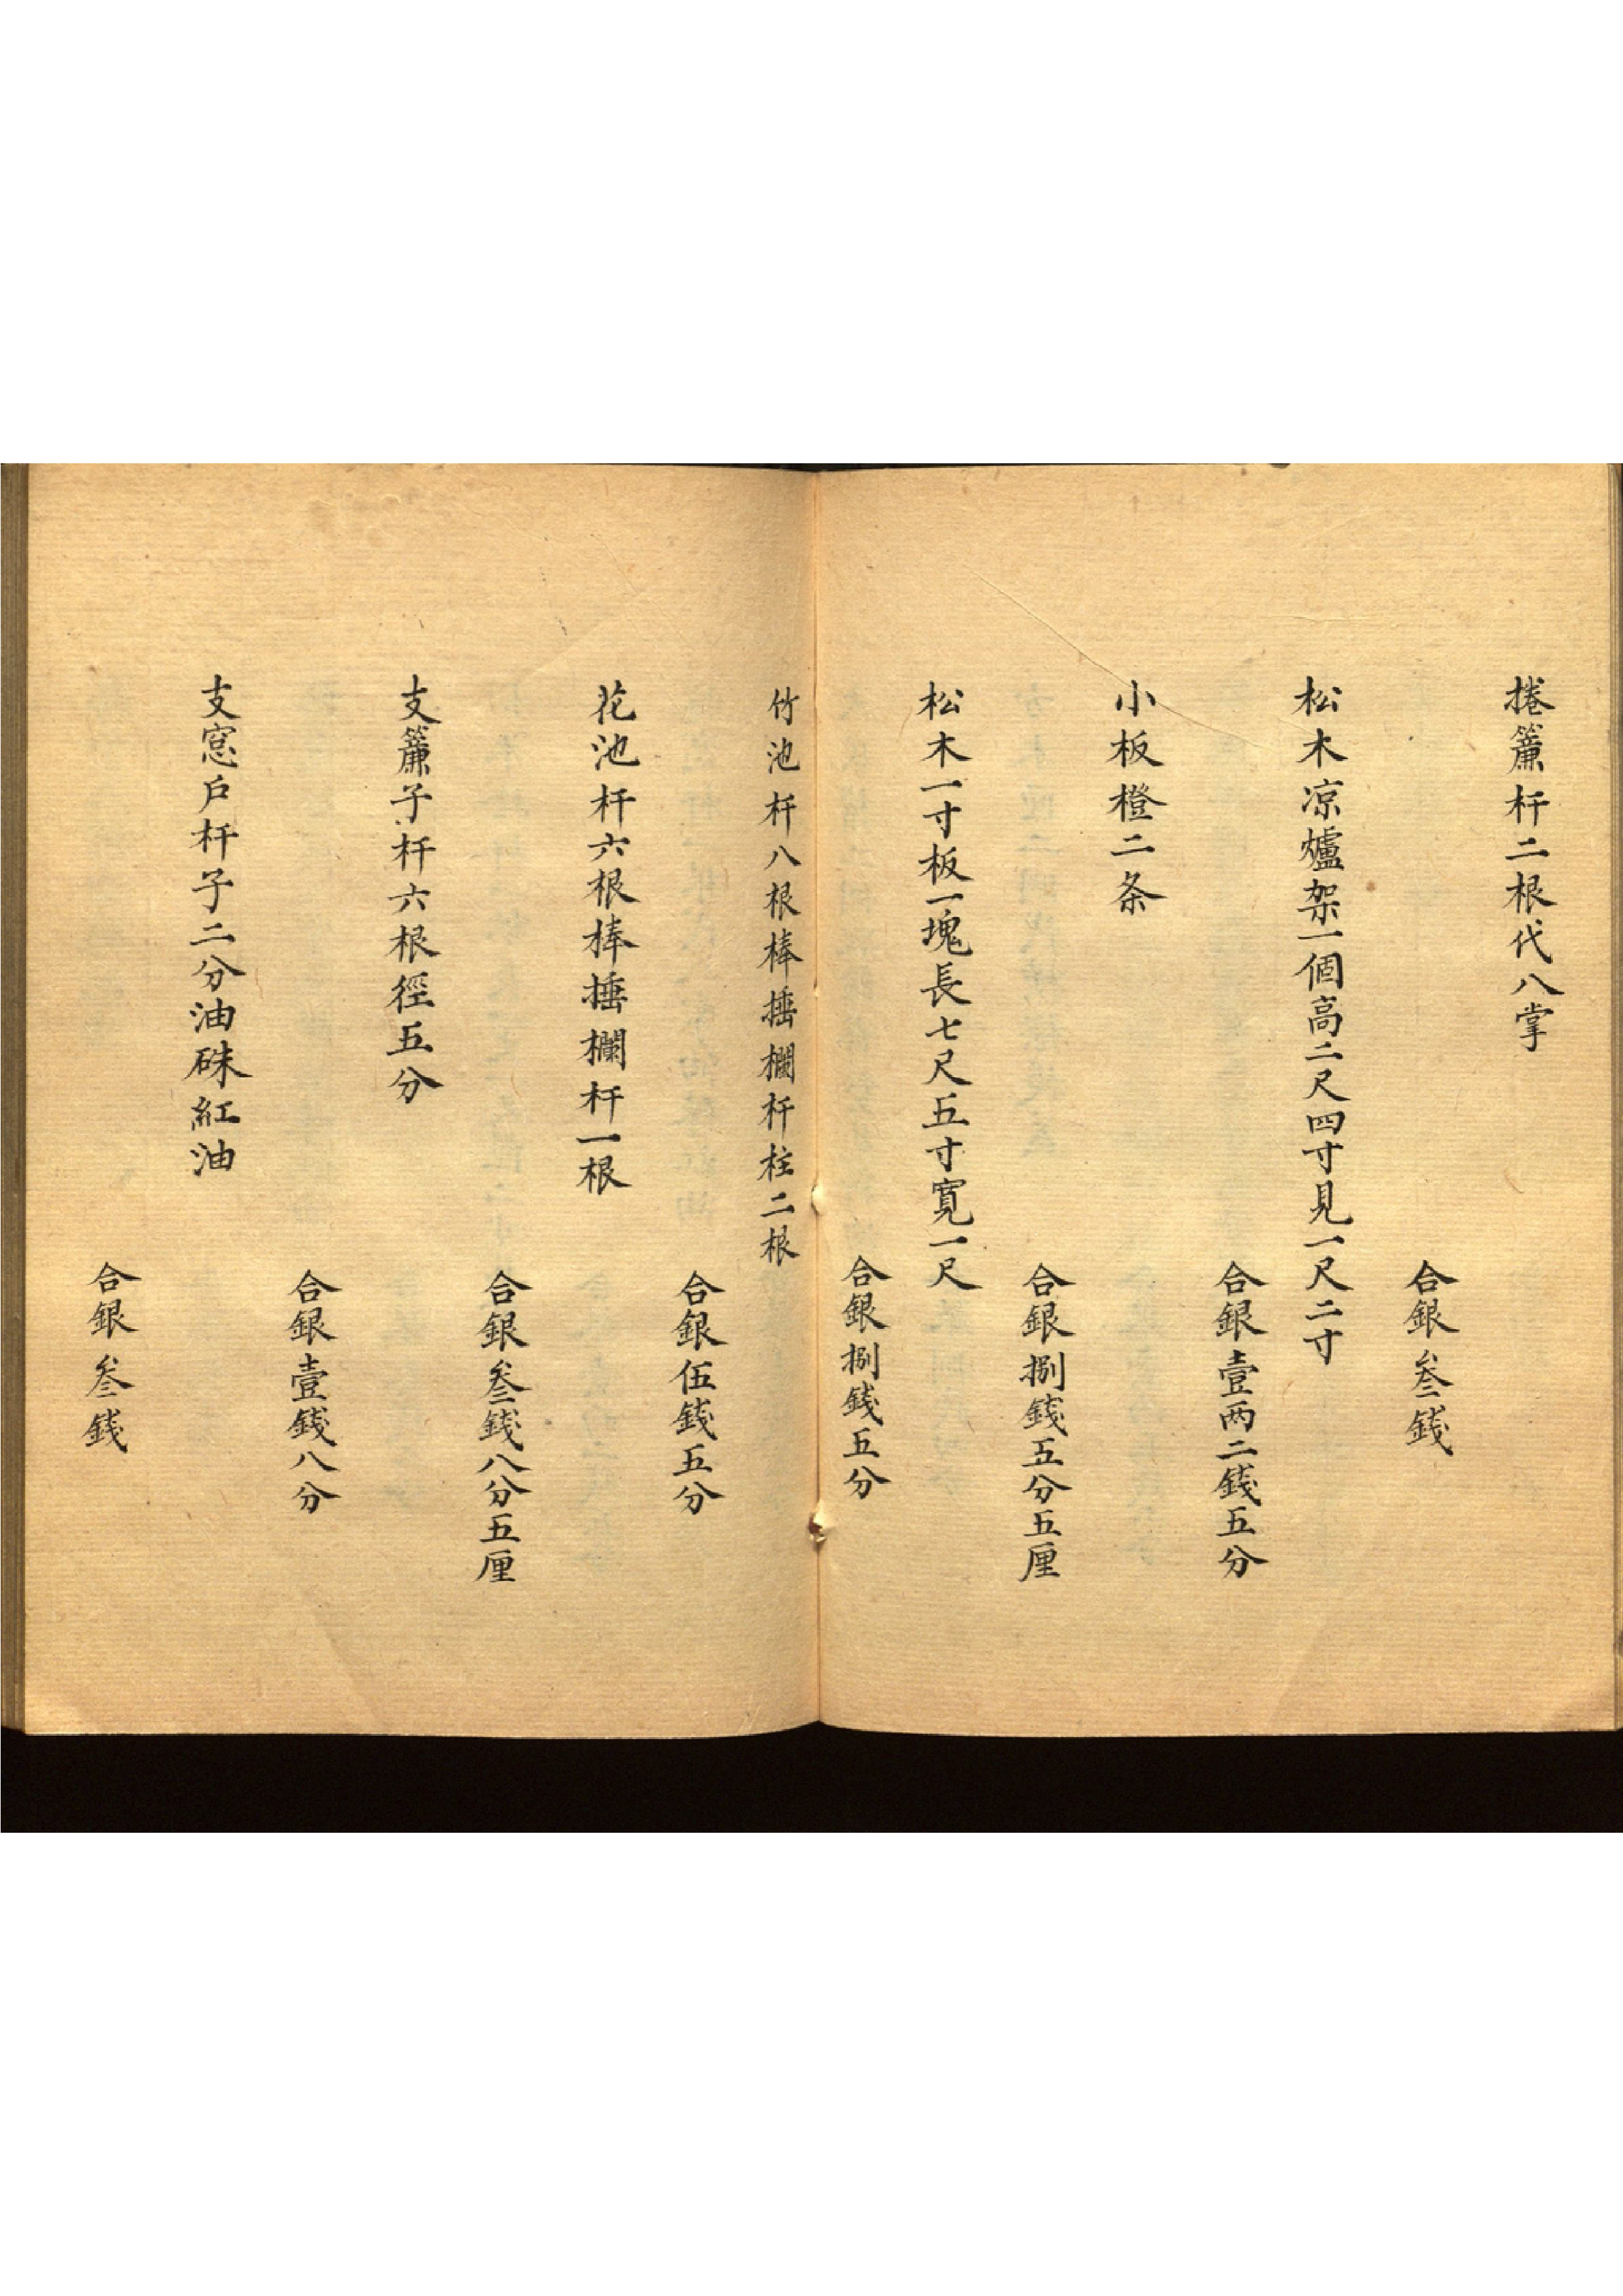 捲簾杆二根代八掌
合銀叁錢
松木凉爐架一個高二尺四寸見一尺二寸
合銀壹两二錢五分
小板橙二条
合銀捌錢五分五厘
松木一寸板一塊長七尺五寸寬一尺
合銀捌錢五分
竹池杆八根棒捶欄杆柱二根
合銀伍錢五分
花池杆六根棒捶欄杆一根
合銀叁錢八分五厘
支簾子杆六根徑五分
合銀壹錢八分
支窓戶杆子二分油硃紅油
合銀叁錢